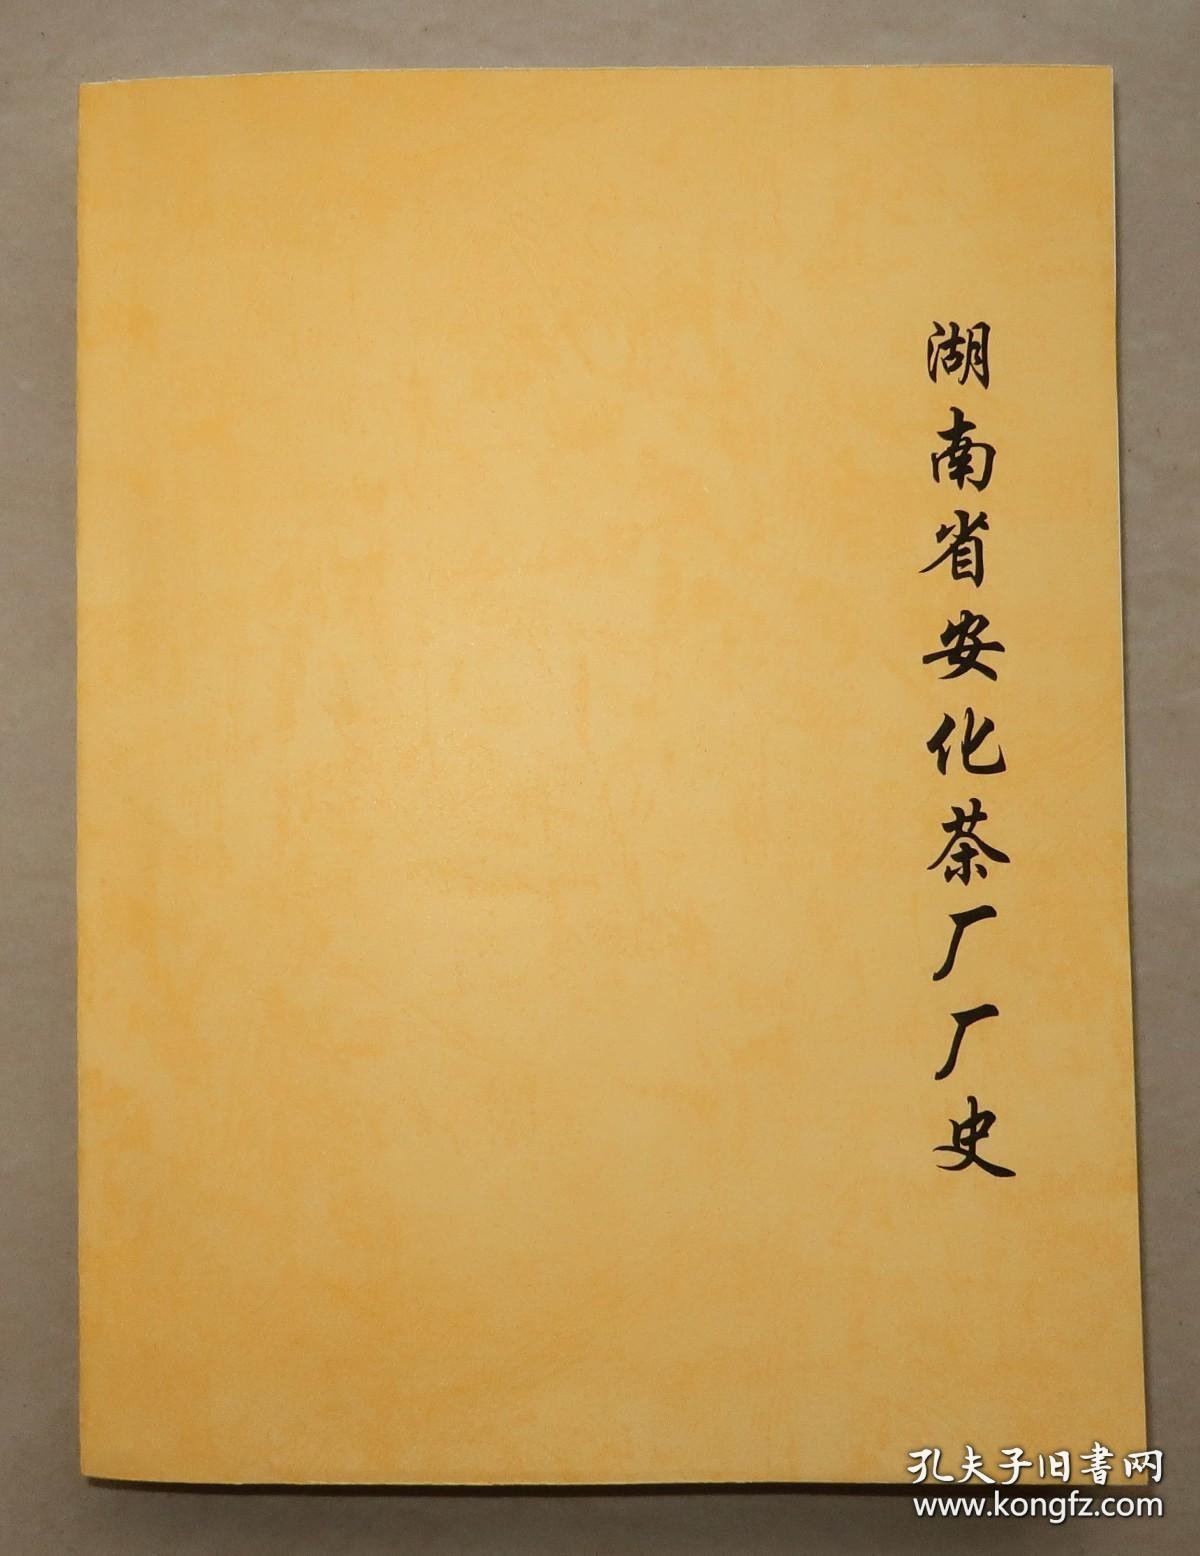 湖南省安化茶厂厂史
孔夫子旧書网
www.kongfz.com